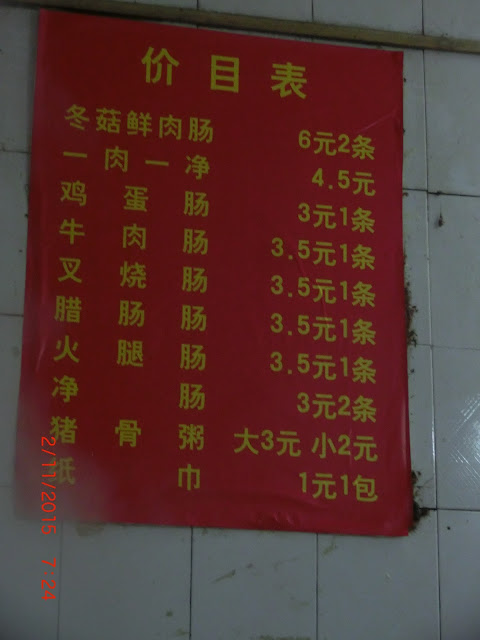 价目表
冬菇鲜肉肠 6元2条
一肉一净 4.5元
鸡蛋肠 3元1条
牛肉肠 3.5元1条
叉烧肠 3.5元1条
腊肠肠 3.5元1条
火腿肠 3.5元1条
净肠 3元2条
猪骨粥 大3元 小2元
纸巾 1元1包
2/11/2015 7:24